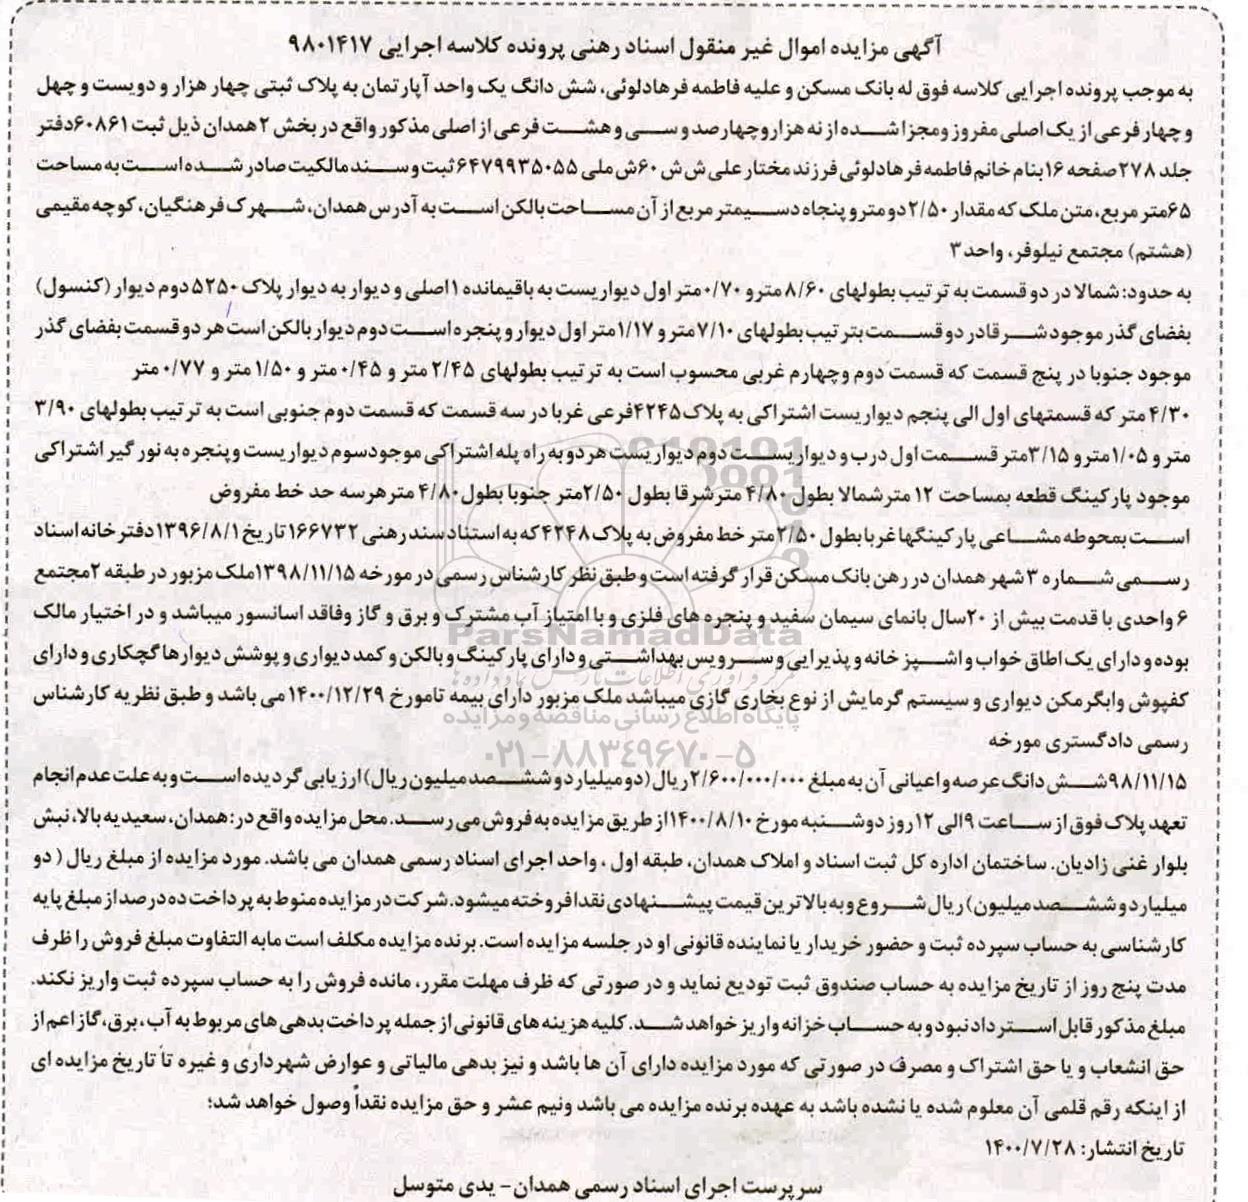 آگهی مزایده اموال غیر منقول اسناد رهنی پرونده کلاسه اجرایی ۹۸۰۱۴۱۷
به موجب پرونده اجرایی کلاسه فوق له بانک مسکن و علیه فاطمه فرهادلوئی، شش دانگ یک واحد آپارتمان به پلاک ثبتی چهار هزار و دویست و چهل
و چهار فرعی از یک اصلی مفروز و مجزا شده از نه هزار و چهارصد و سی و هشت فرعی از اصلی مذکور واقع در بخش ۲ همدان ذیل ثبت ۶۰۸۶۱ دفتر
جلد ۲۷۸ صفحه ۱۶ بنام خانم فاطمه فرهادلوئی فرزند مختار علی ش ش ۶۰ ش ملی ۶۴۷۹۹۳۵۰۵۵ ثبت و سند مالکیت صادر شده است به مساحت
۶۵ متر مربع، متن ملک که مقدار ۲/۵۰ دو متر و پنجاه دسیمتر مربع از آن مساحت بالکن است به آدرس همدان، شهرک فرهنگیان، کوچه مقیمی
(هشتم) مجتمع نیلوفر، واحد ۳
به حدود: شمالا در دو قسمت به ترتیب بطولهای ۸/۶۰ متر و ۰/۷۰ متر اول دیواریست به باقیمانده ۱ اصلی و دیوار به دیوار پلاک ۵۲۵۰ دوم دیوار (کنسول)
بفضای گذر موجود شرقا در دو قسمت بترتیب بطولهای ۷/۱۰ متر و ۱/۱۷ متر اول دیوار و پنجره است دوم دیوار بالکن است هر دو قسمت بفضای گذر
موجود جنوبا در پنج قسمت که قسمت دوم و چهارم غربی محسوب است به ترتیب بطولهای ۲/۴۵ متر و ۰/۴۵ متر و ۱/۵۰ متر و ۰/۷۷ متر
۴/۳۰ متر که قسمتهای اول الی پنجم دیواریست اشتراکی به پلاک ۴۲۴۵ فرعی غربا در سه قسمت که قسمت دوم جنوبی است به ترتیب بطولهای ۳/۹۰
متر و ۱/۰۵ متر و ۳/۱۵ متر قسمت اول درب و دیواریست دوم دیواریست هر دو به راه پله اشتراکی موجود سوم دیواریست و پنجره به نور گیر اشتراکی
موجود پارکینگ قطعه بمساحت ۱۲ متر شمالا بطول ۴/۸۰ متر شرقا بطول ۲/۵۰ متر جنوبا بطول ۴/۸۰ متر هرسه حد خط مفروض
است بمحوطه مشاعی پارکینگها غربا بطول ۲/۵۰ متر خط مفروض به پلاک ۴۲۴۸ که به استناد سند رهنی ۱۶۶۷۳۲ تاریخ ۱۳۹۶/۸/۱ دفترخانه اسناد
رسمی شماره ۳ شهر همدان در رهن بانک مسکن قرار گرفته است و طبق نظر کارشناس رسمی در مورخه ۱۳۹۸/۱۱/۱۵ ملک مزبور در طبقه ۲ مجتمع
۶ واحدی با قدمت بیش از ۲۰ سال بانمای سیمان سفید و پنجره های فلزی و با امتیاز آب مشترک و برق و گاز وفاقد اسانسور میباشد و در اختیار مالک
بوده و دارای یک اطاق خواب و اشپزخانه و پذیرایی و سرویس بهداشتی و دارای پارکینگ و بالکن و کمد دیواری و پوشش دیوارها گچکاری و دارای
کفپوش وابگرمکن دیواری و سیستم گرمایش از نوع بخاری گازی میباشد ملک مزبور دارای بیمه تامورخ ۱۴۰۰/۱۲/۲۹ می باشد و طبق نظریه کارشناس
رسمی دادگستری مورخه
۹۸/۱۱/۱۵ شش دانگ عرصه و اعیانی آن به مبلغ ۲/۶۰۰/۰۰۰/۰۰۰ ریال (دو میلیارد و ششصد میلیون ریال) ارزیابی گردیده است و به علت عدم انجام
تعهد پلاک فوق از ساعت ۹ الی ۱۲ روز دوشنبه مورخ ۱۴۰۰/۸/۱۰ از طریق مزایده به فروش می رسد. محل مزایده واقع در: همدان، سعیدیه بالا، نبش
بلوار غنی زادیان. ساختمان اداره کل ثبت اسناد و املاک همدان، طبقه اول، واحد اجرای اسناد رسمی همدان می باشد. مورد مزایده از مبلغ ریال (دو
میلیارد و ششصد میلیون) ریال شروع و به بالاترین قیمت پیشنهادی نقدا فروخته میشود. شرکت در مزایده منوط به پرداخت ده درصد از مبلغ پایه
کارشناسی به حساب سپرده ثبت و حضور خریدار یا نماینده قانونی او در جلسه مزایده است. برنده مزایده مکلف است مابه التفاوت مبلغ فروش را ظرف
مدت پنج روز از تاریخ مزایده به حساب صندوق ثبت تودیع نماید و در صورتی که ظرف مهلت مقرر، مانده فروش را به حساب سپرده ثبت واریز نکند.
مبلغ مذکور قابل استرداد نبود و به حساب خزانه واریز خواهد شد. کلیه هزینه های قانونی از جمله پرداخت بدهی های مربوط به آب، برق، گاز اعم از
حق انشعاب و یا حق اشتراک و مصرف در صورتی که مورد مزایده دارای آن ها باشد و نیز بدهی مالیاتی و عوارض شهرداری و غیره تا تاریخ مزایده ای
از اینکه رقم قلمی آن معلوم شده یا نشده باشد به عهده برنده مزایده می باشد ونیم عشر و حق مزایده نقداً وصول خواهد شد؛
تاریخ انتشار: ۱۴۰۰/۷/۲۸
سرپرست اجرای اسناد رسمی همدان- یدی متوسل
ParsNamadData
پایگاه اطلاع رسانی مناقصه و مزایده
۰۲۱-۸۸۳۴۹۶۷۰-۵